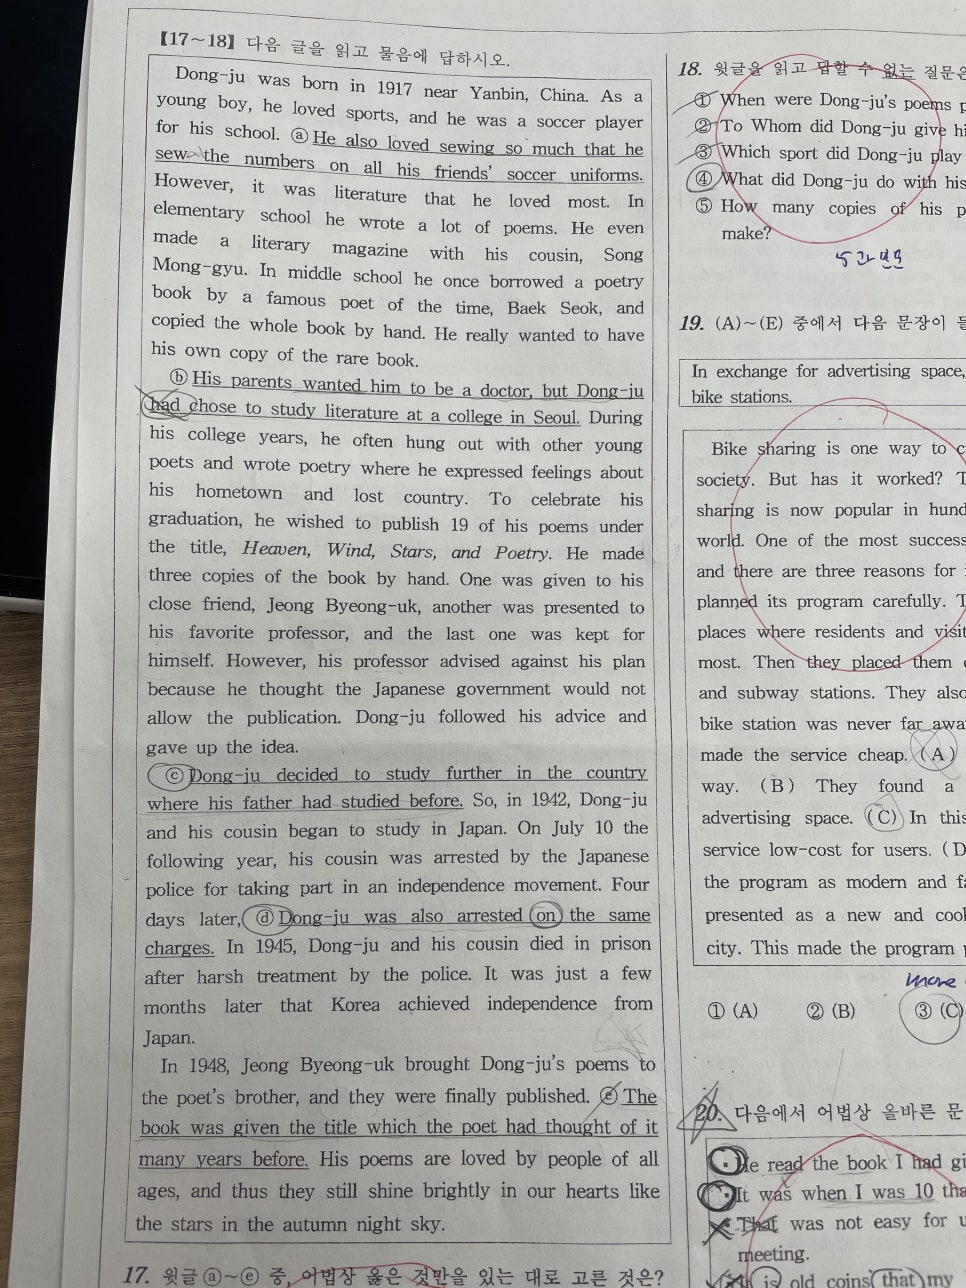 【17～18】 다음 글을 읽고 물음에 답하시오.
Dong-ju was born in 1917 near Yanbin, China. As a
young boy, he loved sports, and he was a soccer player
for his school. ⓐ He also loved sewing so much that he
sew the numbers on all his friends' soccer uniforms.
However, it was literature that he loved most. In
elementary school he wrote a lot of poems. He even
made a literary magazine with his cousin, Song
Mong-gyu. In middle school he once borrowed a poetry
book by a famous poet of the time, Baek Seok, and
copied the whole book by hand. He really wanted to have
his own copy of the rare book.
ⓑ His parents wanted him to be a doctor, but Dong-ju
had chose to study literature at a college in Seoul. During
his college years, he often hung out with other young
poets and wrote poetry where he expressed feelings about
his hometown and lost country. To celebrate his
graduation, he wished to publish 19 of his poems under
the title, Heaven, Wind, Stars, and Poetry. He made
three copies of the book by hand. One was given to his
close friend, Jeong Byeong-uk, another was presented to
his favorite professor, and the last one was kept for
himself. However, his professor advised against his plan
because he thought the Japanese government would not
allow the publication. Dong-ju followed his advice and
gave up the idea.
ⓒ Dong-ju decided to study further in the country
where his father had studied before. So, in 1942, Dong-ju
and his cousin began to study in Japan. On July 10 the
following year, his cousin was arrested by the Japanese
police for taking part in an independence movement. Four
days later, ⓓ Dong-ju was also arrested on the same
charges. In 1945, Dong-ju and his cousin died in prison
after harsh treatment by the police. It was just a few
months later that Korea achieved independence from
Japan.
In 1948, Jeong Byeong-uk brought Dong-ju's poems to
the poet's brother, and they were finally published. ⓔ The
book was given the title which the poet had thought of it
many years before. His poems are loved by people of all
ages, and thus they still shine brightly in our hearts like
the stars in the autumn night sky.
17. 윗글 ⓐ~ⓔ 중, 어법상 옳은 것만을 있는 대로 고른 것은?
18. 윗글을 읽고 답할 수 없는 질문은
① When were Dong-ju's poems p
② To Whom did Dong-ju give hi
③ Which sport did Dong-ju play
④ What did Dong-ju do with his
⑤ How many copies of his p
make?
19. (A)~(E) 중에서 다음 문장이 들
In exchange for advertising space,
bike stations.
Bike sharing is one way to c
society. But has it worked? T
sharing is now popular in hund
world. One of the most success
and there are three reasons for
planned its program carefully. T
places where residents and visit
most. Then they placed them
and subway stations. They also
bike station was never far awa
made the service cheap. (A)
way. (B) They found a
advertising space. (C) In this
service low-cost for users. (D
the program as modern and fa
presented as a new and cool
city. This made the program p
more
① (A) ② (B) ③ (C)
20. 다음에서 어법상 올바른 문
He read the book I had gi
It was when I was 10 tha
That was not easy for u
meeting.
is old coins that my